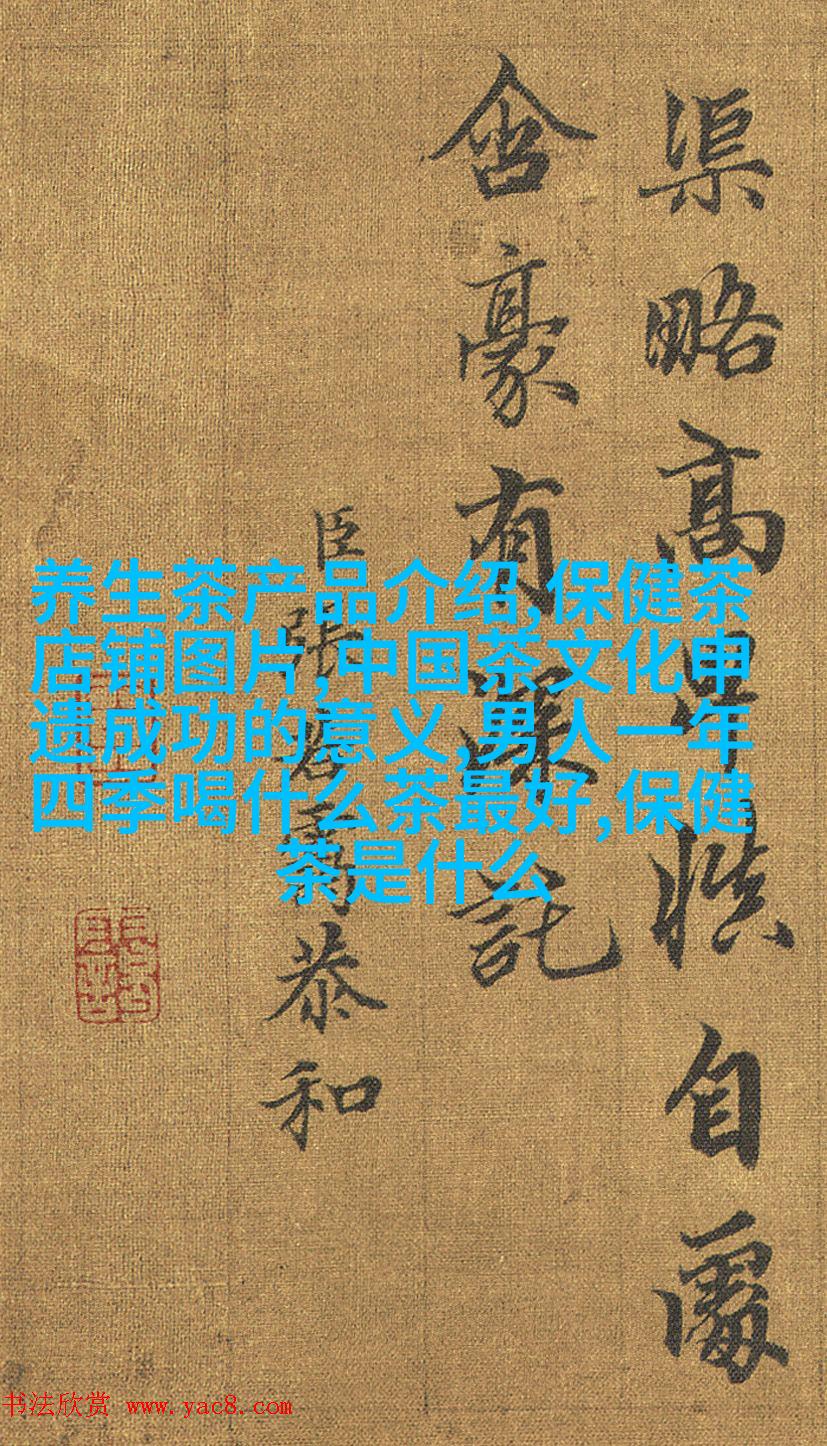 渠略高慎自處
含豪有深託
臣張若恭和
养生茶产品介绍,保健茶
店铺图片,中国茶文化申
遗成功的意义,男人一年
四季喝什么茶最好,保健
茶是什么
书法欣赏 www.yac8.com